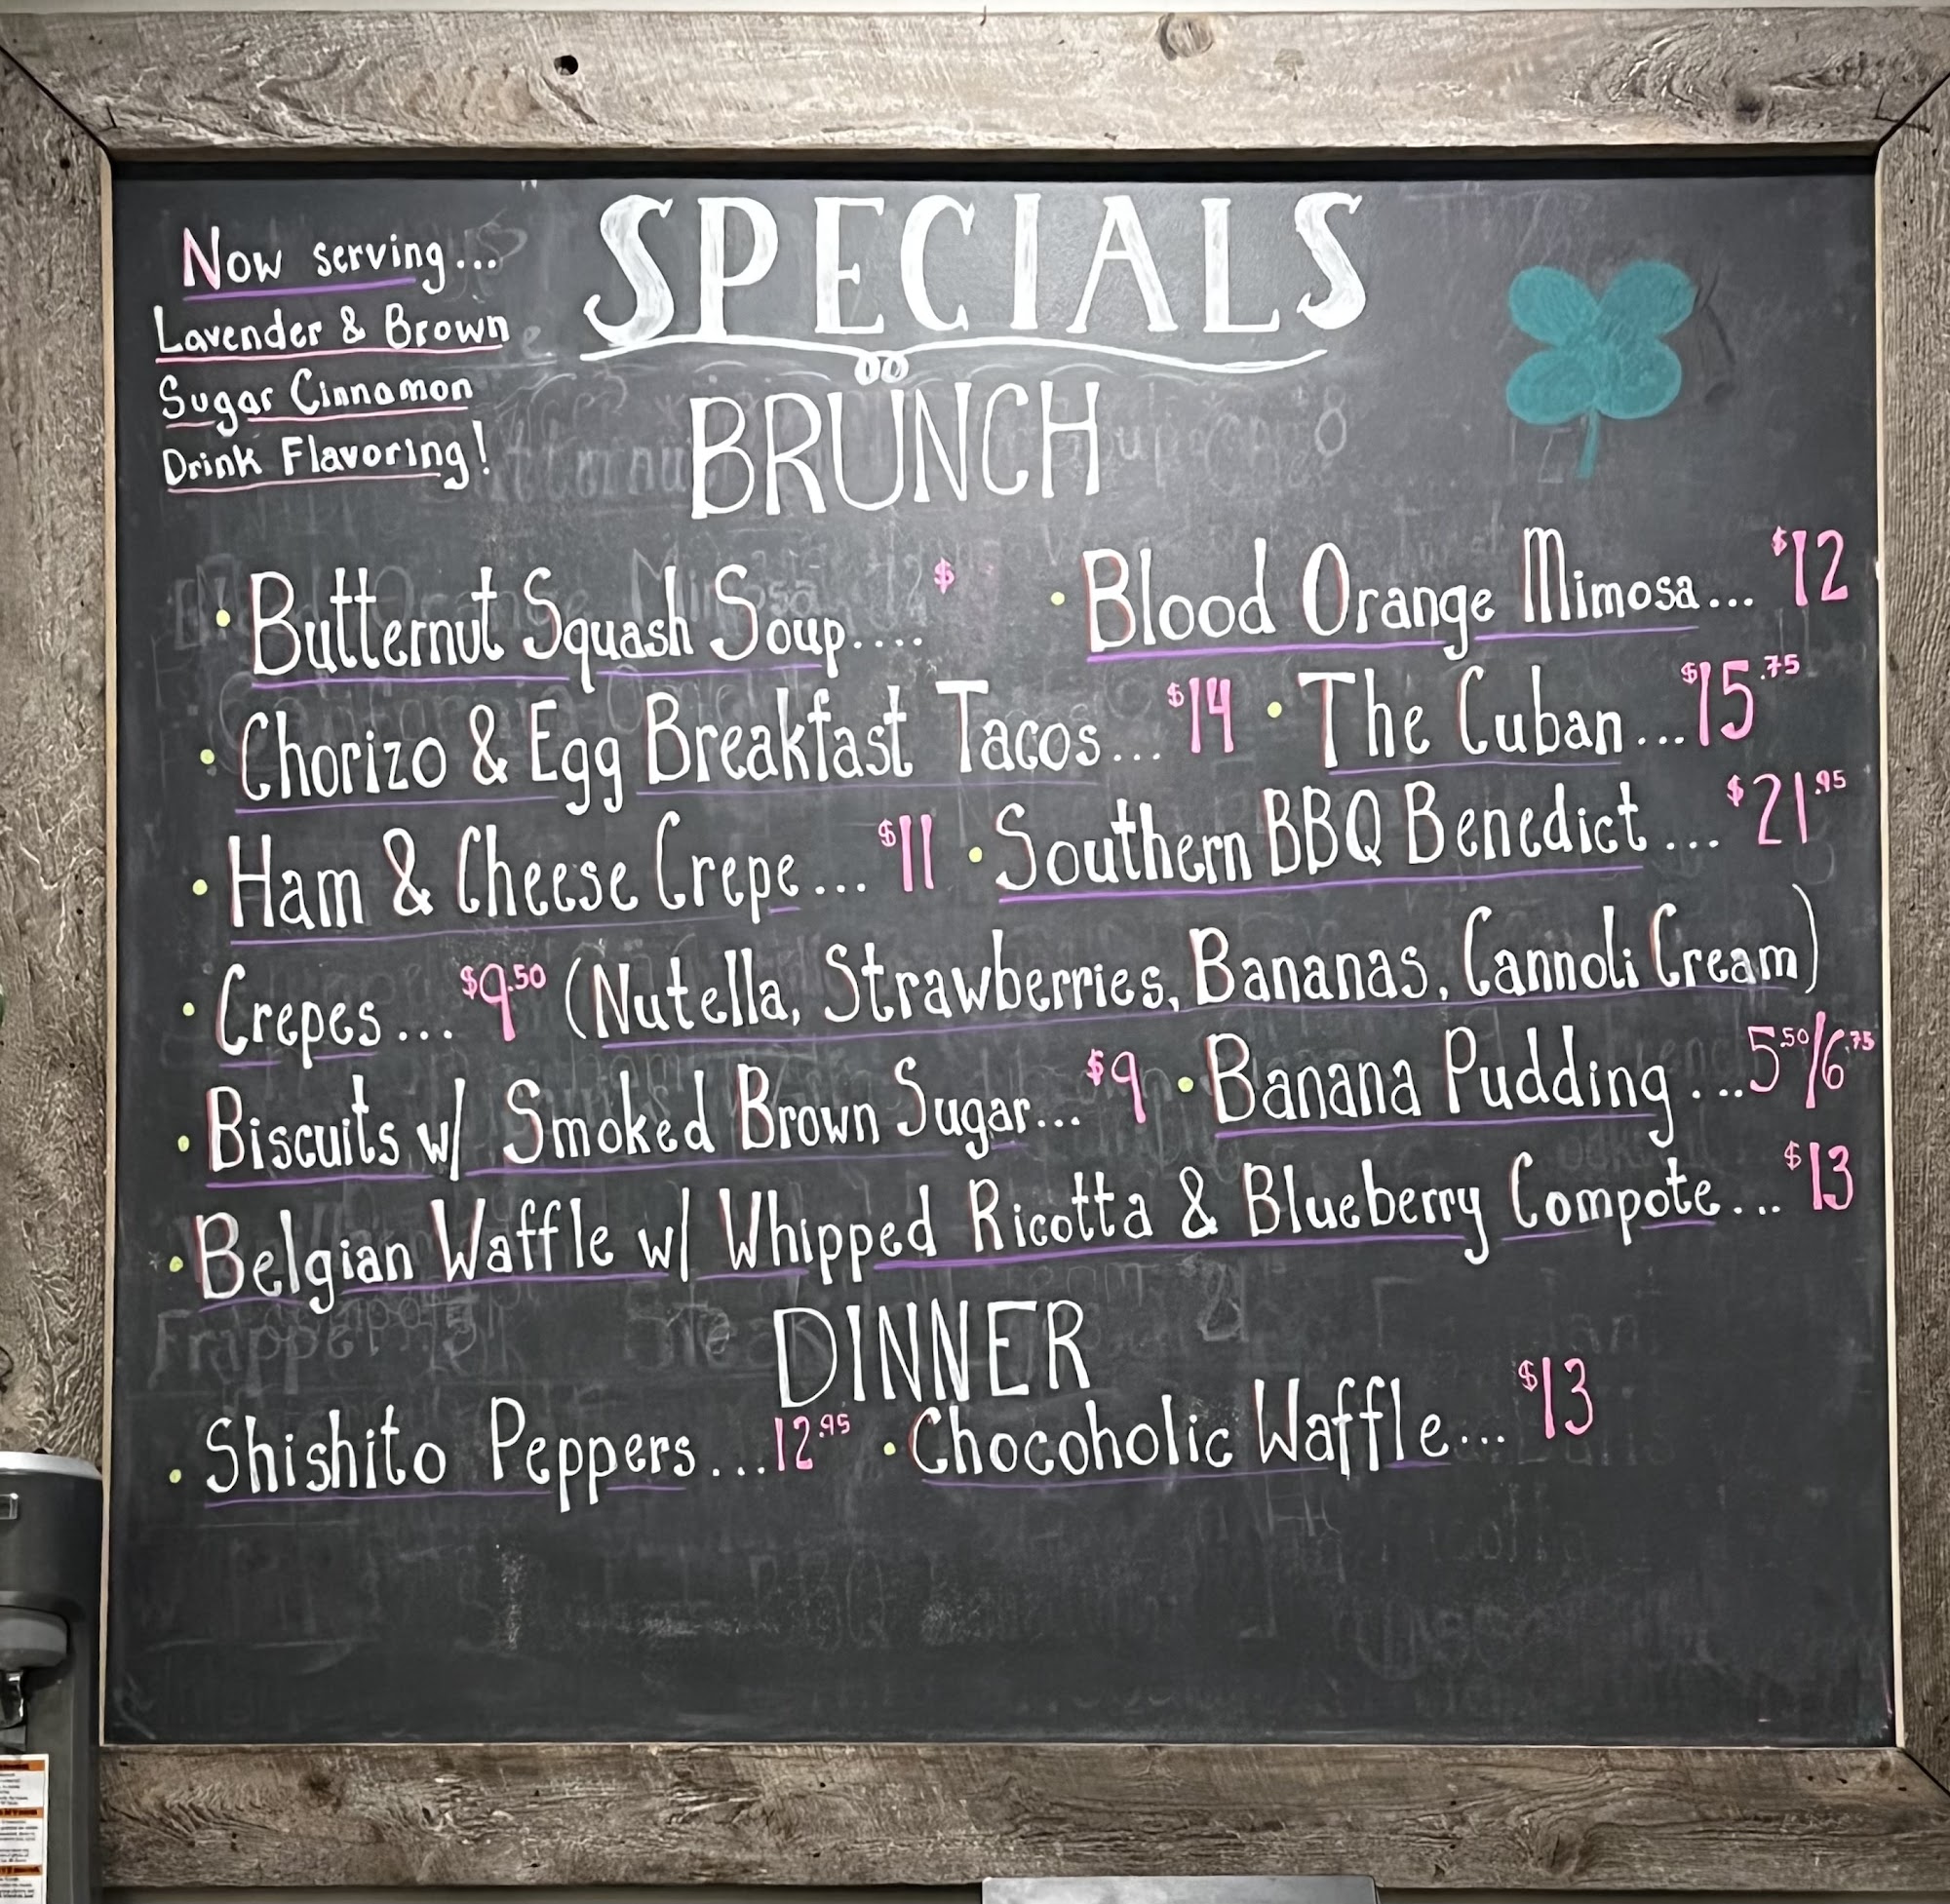 Now serving...
Lavender & Brown
Sugar Cinnamon
Drink Flavoring!
SPECIALS
BRUNCH
• Butternut Squash Soup.... $ • Blood Orange Mimosa... $12
• Chorizo & Egg Breakfast Tacos... $14 • The Cuban...$15.75
• Ham & Cheese Crepe... $11 • Southern BBQ Benedict... $21.95
• Crepes... $9.50 (Nutella, Strawberries, Bananas, Cannoli Cream)
• Biscuits w/ Smoked Brown Sugar... $9 • Banana Pudding...5.50/6.75
• Belgian Waffle w/ Whipped Ricotta & Blueberry Compote... $13
DINNER
• Shishito Peppers...12.95 • Chocoholic Waffle... $13